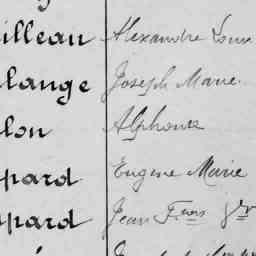 illeau Alexandre Louis
lange Joseph Marie
llon Alphonse
pard Eugène Marie
pard Jean F.çois Jn